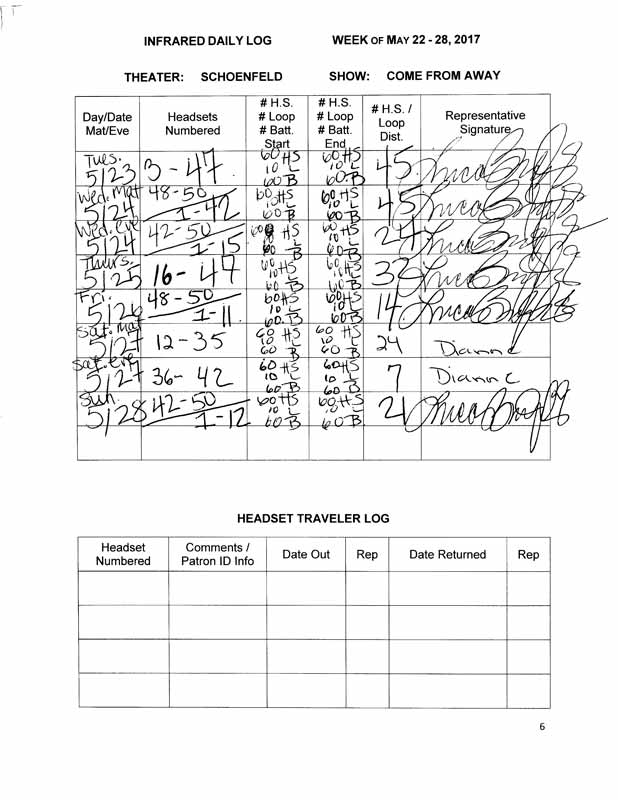 INFRARED DAILY LOG WEEK OF MAY 22 - 28, 2017
THEATER: SCHOENFELD SHOW: COME FROM AWAY
Day/Date Mat/Eve Headsets Numbered # H.S. # Loop # Batt. Start # H.S. # Loop # Batt. End # H.S. / Loop Dist. Representative Signature
Tues. 5/23 3 - 47 60 HS 10 L 60 B 60 HS 10 L 60 B 45
Wed. Mat 5/24 48 - 50 1 - 42 60 HS 10 L 60 B 60 HS 10 L 60 B 45
Wed. eve 5/24 42 - 50 1 - 15 60 HS 10 L 60 B 60 HS 10 L 60 B 24
Thurs. 5/25 16 - 47 60 HS 10 L 60 B 60 HS 10 L 60 B 32
Fri. 5/26 48 - 50 1 - 11 60 HS 10 L 60 B 60 HS 10 L 60 B 14
Sat. Mat 5/27 12 - 35 60 HS 10 L 60 B 60 HS 10 L 60 B 24 Diann C
Sat. eve 5/27 36 - 42 60 HS 10 L 60 B 60 HS 10 L 60 B 7 Diann C
Sun. 5/28 42 - 50 1 - 12 60 HS 10 L 60 B 60 HS 10 L 60 B 21
HEADSET TRAVELER LOG
Headset Numbered Comments / Patron ID Info Date Out Rep Date Returned Rep
6